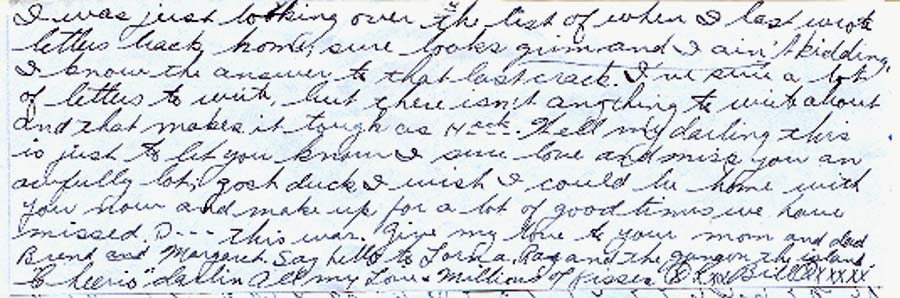 I was just looking over the list of when I last wrote
letters back home, sure looks grim and I ain't kidding,
I know the answer to that last crack. I've sure a lot
of letters to write, but there isn't anything to write about
and that makes it tough as Heck. Well my darling this
is just to let you know I sure love and miss you an
awfully lot, gosh duck I wish I could be home with
you now and make up for a lot of good times we have
missed. D--- this war. Give my love to your mom and dad
Brent and Margaret. Say hello to Lorna, Ray and the gang on the island
"Cheerio" darlin All my Love & Millions of Kisses Bill xxxxx